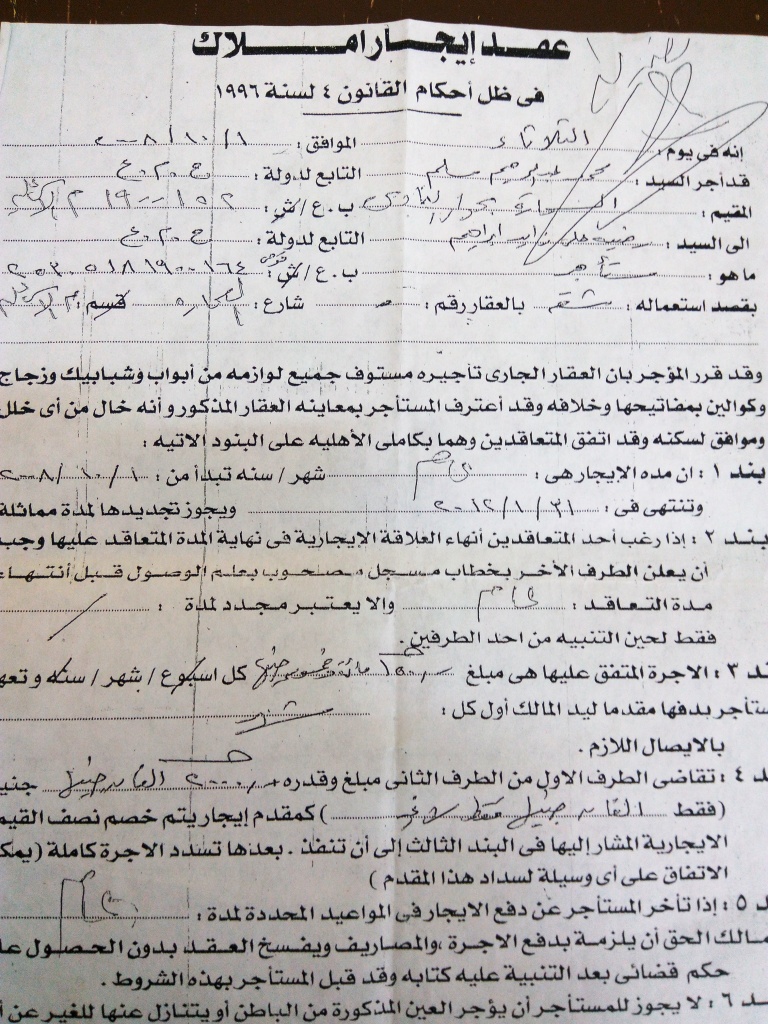 عقد إيجار املاك
فى ظل أحكام القانون ٤ لسنة ١٩٩٦
إنه فى يوم : الثلاثاء الموافق : ٢٠٠٨/١٠/١
قد أجر السيد : محمد عبد الرحيم سليم التابع لدولة : ج.م.ع
المقيم : ب.ع/ش :
الى السيد : التابع لدولة : ج.م.ع
ما هو : مستأجر ب.ع/ش : ٢٥٣٠٥١٨١٩٠٠١٦٤
بقصد استعماله : شقة بالعقار رقم : شارع : قسم :
وقد قرر المؤجر بان العقار الجارى تأجيره مستوف جميع لوازمه من أبواب وشبابيك وزجاج
وكوالين بمفاتيحها وخلافه وقد أعترف المستأجر بمعاينه العقار المذكور و أنه خال من أى خلل
وموافق لسكنه وقد اتفق المتعاقدين وهما بكاملى الأهليه على البنود الاتيه :
بند ١ : ان مده الإيجار هى : شهر / سنه تبدأ من : ٢٠٠٨/١٠/١
وتنتهى فى : ٢٠١٢/١/٣١ ويجوز تجديدها لمدة مماثلة
بند ٢ : إذا رغب أحد المتعاقدين أنهاء العلاقة الإيجارية فى نهاية المدة المتعاقد عليها وجب
أن يعلن الطرف الأخر بخطاب مسجل مصحوب بعلم الوصول قبل أنتهاء
مدة التعاقد : والا يعتبر مجدد لمدة :
فقط لحين التنبيه من احد الطرفين .
ند ٣ : الاجرة المتفق عليها هى مبلغ ١٥٠ مائة وخمسون جنيها كل اسبوع / شهر / سنه و تعه
ستأجر بدفها مقدما ليد المالك أول كل : شهر
بالايصال اللازم .
د ٤ : تقاضى الطرف الاول من الطرف الثانى مبلغ وقدره ٢٠٠٠ جني
(فقط ) كمقدم إيجار يتم خصم نصف القيم
الايجارية المشار إليها فى البند الثالث إلى أن تنفذ . بعدها تسدد الاجرة كاملة (يمك
الاتفاق على أى وسيلة لسداد هذا المقدم )
د ٥ : إذا تأخر المستأجر عن دفع الايجار فى المواعيد المحددة لمدة :
مالك الحق أن يلزمة بدفع الاجرة ،والمصاريف ويفسخ العقد بدون الحصول عل
حكم قضائى بعد التنبية عليه كتابه وقد قبل المستأجر بهذه الشروط .
د ٦ : لا يجوز للمستأجر أن يؤجر العين المذكورة من الباطن أو يتنازل عنها للغير عن أ